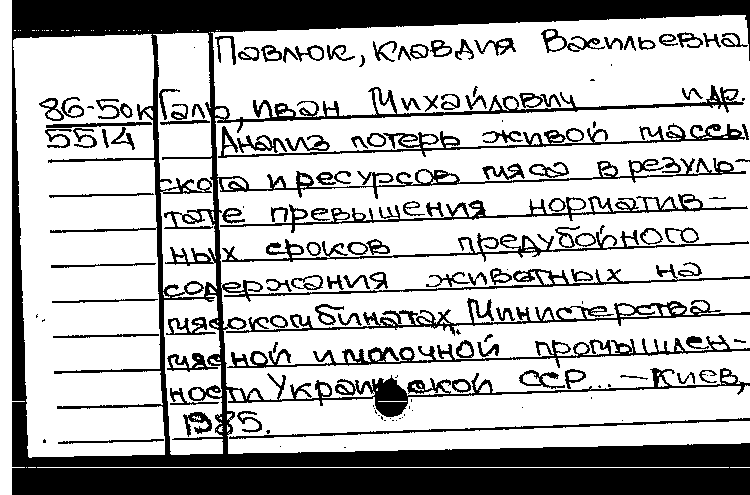 Павлюк, Клавдия Васильевна
86-5ок Галю, Иван Михайлович и др.
5514 Анализ потерь живой массы
скота и ресурсов мяса в резуль-
тате превышения норматив-
ных сроков предубойного
содержания животных на
мясокомбинатах Министерства
мясной и молочной промышлен-
ности Украинской ССР... - Киев,
1985.